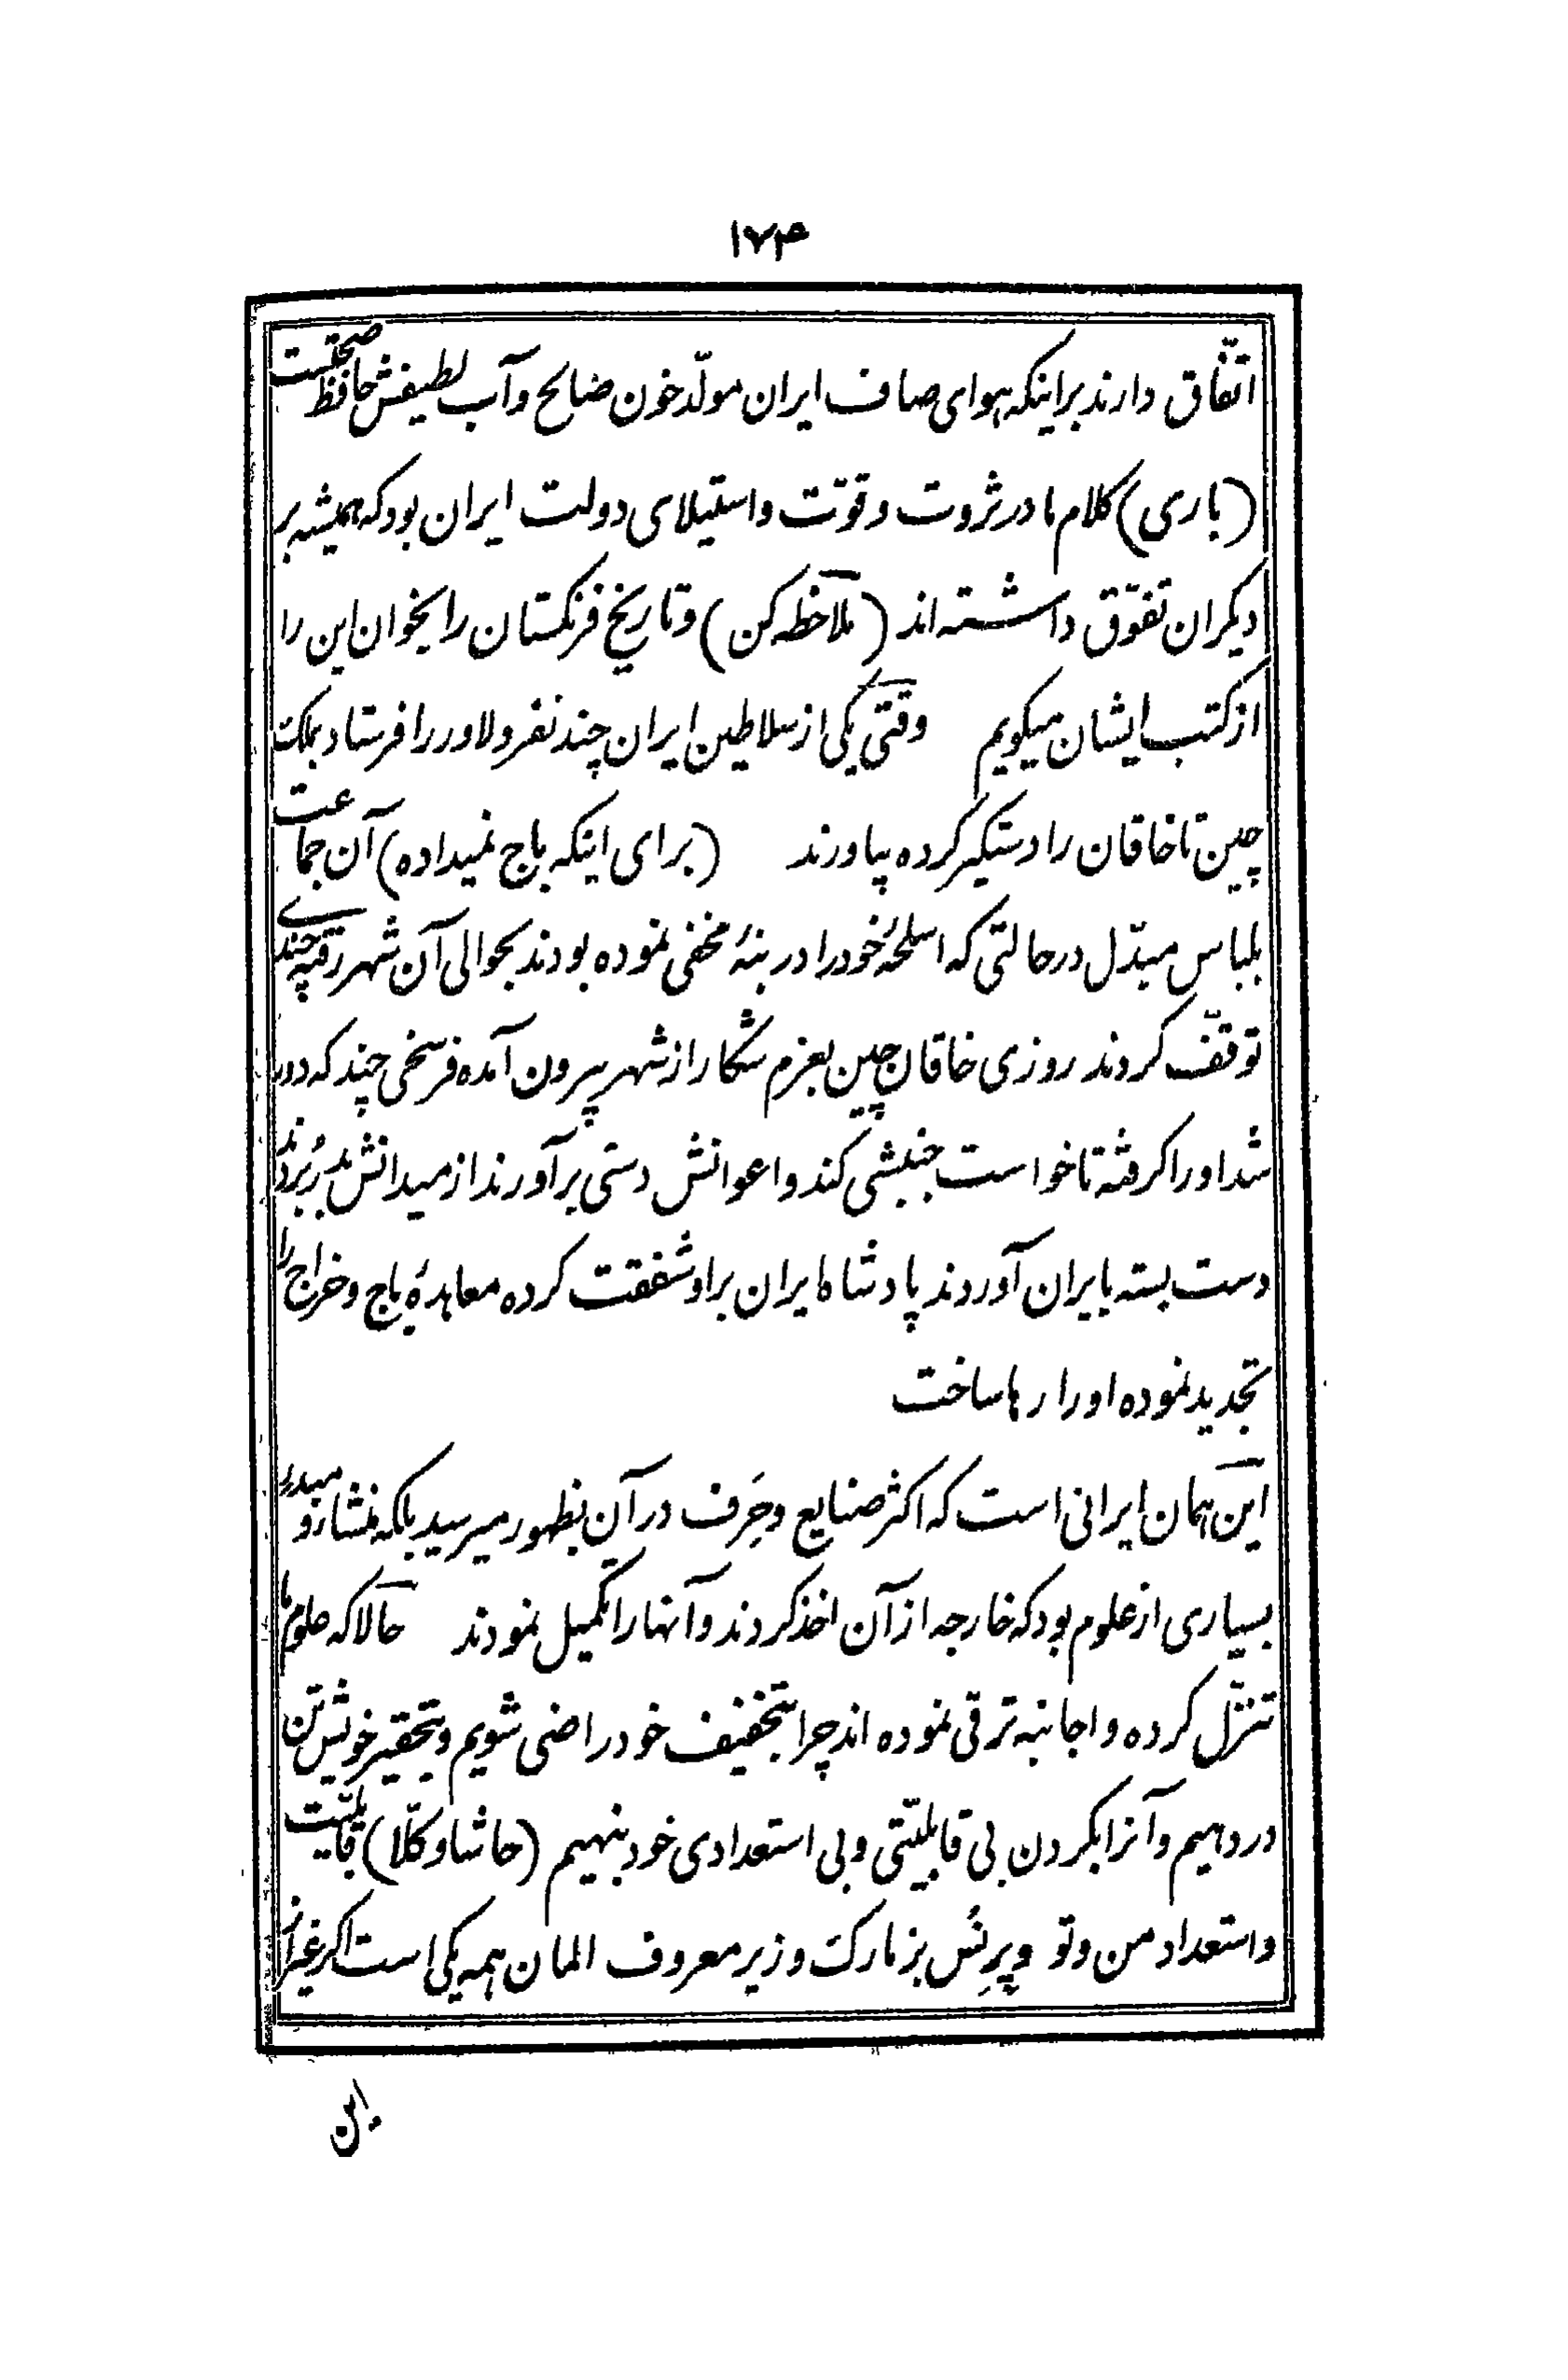 ۱۷۴
اتّفاق دارند براینکه هوای صاف ایران مولّد خون صالح و آب لطیفش حافظ صحّتست
(باری) کلام ما در ثروت و قوّت و استیلای دولت ایران بود که همیشه بر
دیکران تفوّق داشته اند (ملاحظه کن) و تاریخ فرنکستان را بخوان این را
از کتب ایشان میکویم وقتی یکی از سلاطین ایران چند نفر دلاور را فرستاد بملک
چین تا خاقان را دستکیر کرده بیاورند (برای اینکه باج نمیداده) آن جماعت
بلباس مبدّل در حالتی که اسلحهٔ خود را در بنهٔ مخفی نموده بودند بحوالی آن شهر رفته چندی
توقّف کردند روزی خاقان چین بعزم شکار از شهر بیرون آمده فرسخی چند که دور
شد او را کرفته تا خواست جنبشی کند و اعوانش دستی برآورند از میدانش بدر بردند
دست بسته بایران آوردند پادشاه ایران بر او شفقت کرده معاهدهٔ باج و خراج را
تجدید نموده او را رها ساخت
این همان ایرانی است که اکثر صنایع و حِرَف در آن بظهور میرسید بلکه منشا و مبدء
بسیاری از علوم بود که خارجه از آن اخذ کردند و آنها را تکمیل نمودند حالا که علوم ما
تنزّل کرده و اجانبه ترقی نموده اند چرا بتخفیف خود راضی شویم و بتحقیر خویش تن
در دهیم و آنرا بکردن بی قابلیّتی و بی استعدادی خود بنهیم (حاشا و کلّا) قابلیّت
و استعداد من و تو و پرِنسُ بزمارک وزیر معروف المان همه یکی است اکر غیر از